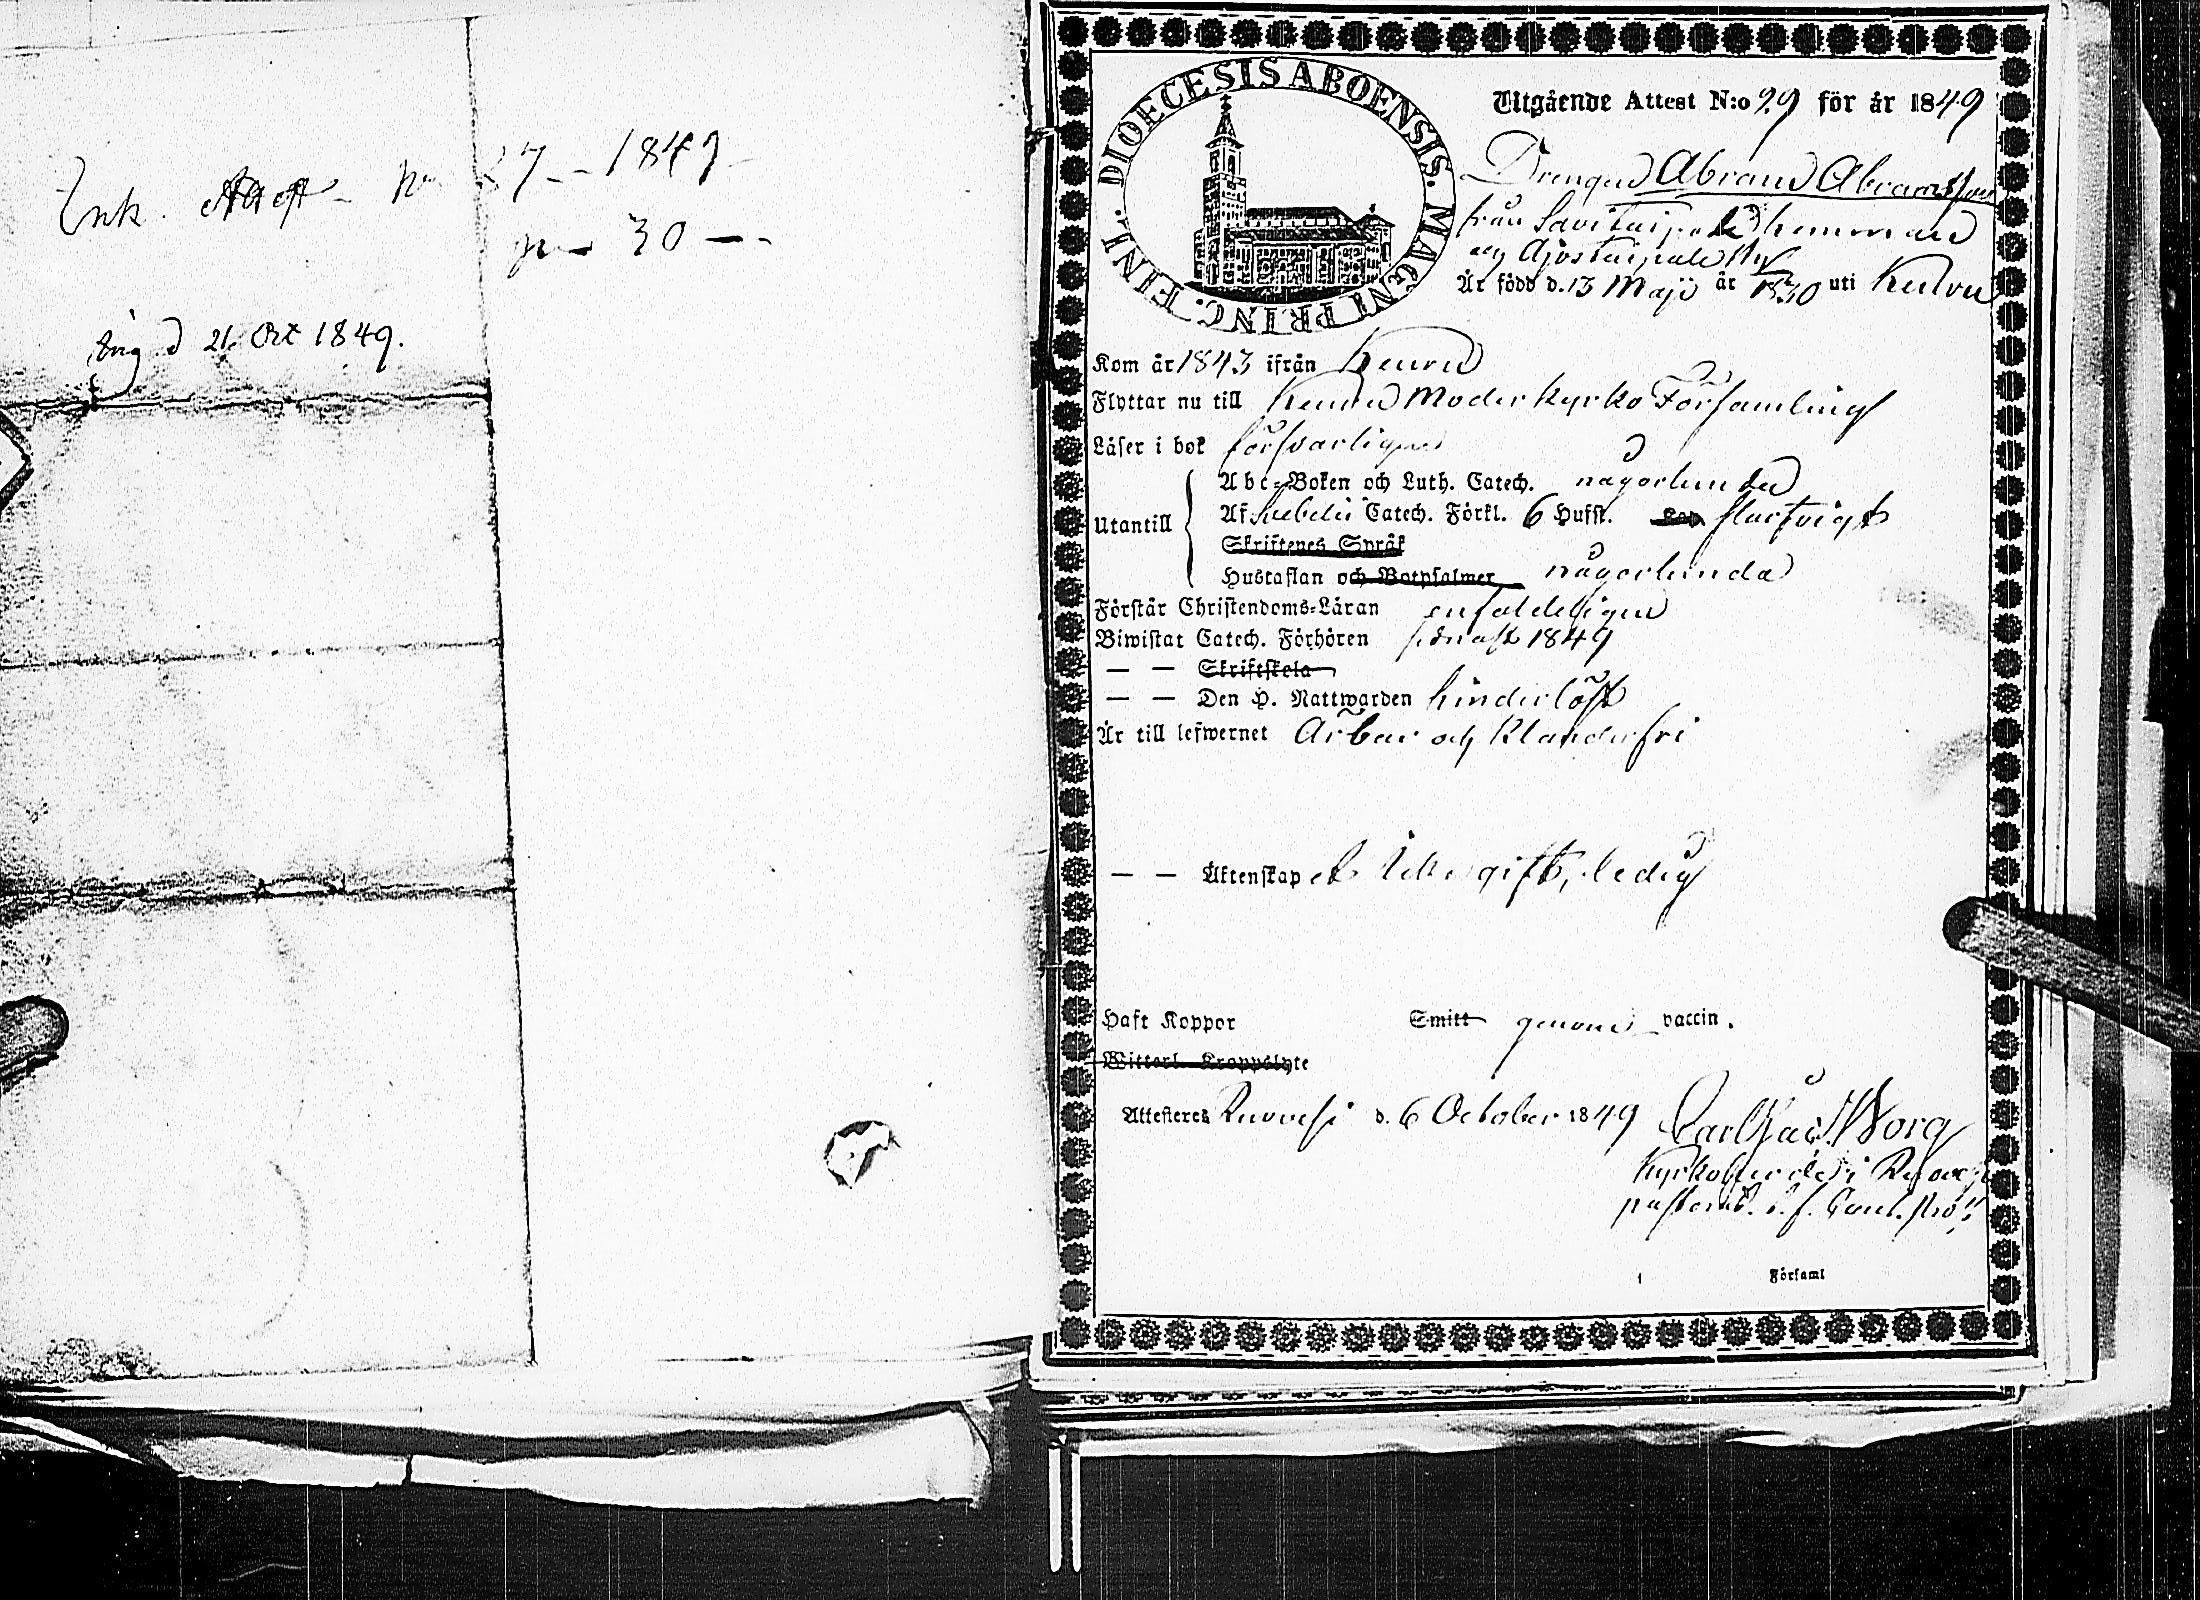 Ink. Attest No 27 - 1849
pag 30
Ing d 21 Oct 1849.
DIOECESIS ABOENSIS. MAGNI PRINC. FINL.
Utgående Attest N:o 29 för år 1849
Drengen Abram Abramsson
från Savitaipale hemman
af Ajostaipale by
Är född d. 13 Maji år 1830 uti Keuru
Kom år 1843 ifrån Keuru
Flyttar nu till Keuru Moderkyrko Församling
Läser i bok försvarligen
Utantill
Abc-Boken och Luth. Catech. någorlunda
Af Svebelii Catech. Förkl. 6 Hufst. slarfvigt
Skriftenes Språk
Hustaflan och Botpsalmer någorlunda
Förstår Christendoms-Läran enfaldeligen
Biwistat Catech. Förhören sednast 1849
— — Skriftskola
— — Den H. Nattwarden hinderlöst
Är till lefwernet Ärbar och Klanderfri
— — Äktenskap et icke gift, ledig
Haft Koppor Smitt genom vaccin.
Witterl. Kroppslyte
Attesteras Ruovesi d. 6 October 1849 Carl Gust. Borg
Kyrkoherde i Ruovesi
Församl